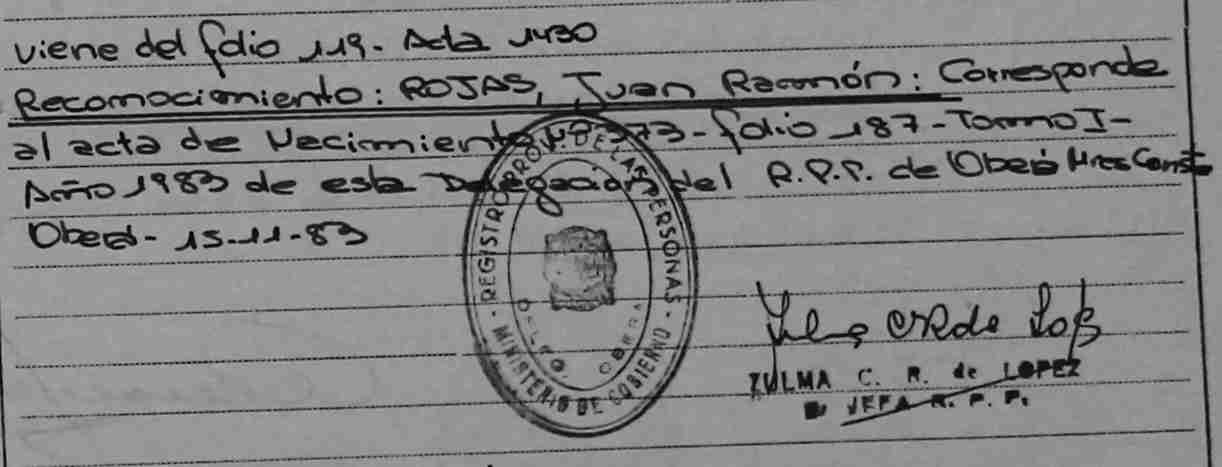 viene del folio 119. Acta 1430
Reconocimiento: ROJAS, Juan Ramón: Corresponde
al acta de Nacimiento Nº 373-folio 187-Tomo I-
Año 1983 de esta Delegación del R.P.P. de Oberá Mnes Conste
Oberá- 15-11-83
REGISTRO PROV. DE LAS PERSONAS
- MINISTERIO DE GOBIERNO -
ZULMA C. R. de LOPEZ
JEFA R. P. P.